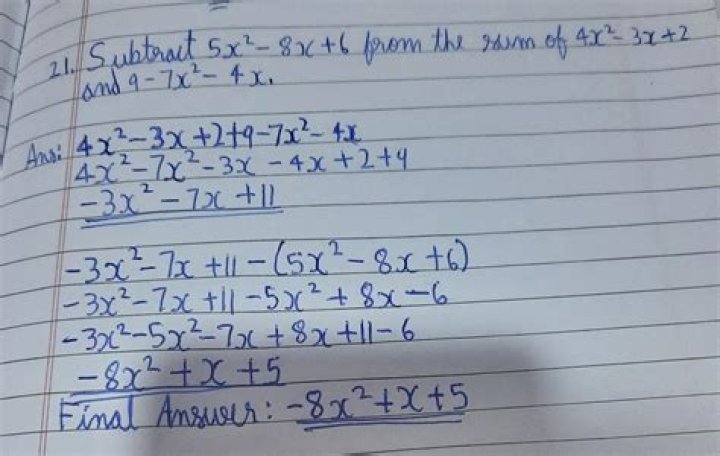 21. Subtract 5x² - 8x + 6 from the sum of 4x² - 3x + 2
and 9 - 7x² - 4x.
Ans: 4x² - 3x + 2 + 9 - 7x² - 4x
4x² - 7x² - 3x - 4x + 2 + 9
-3x² - 7x + 11
-3x² - 7x + 11 - (5x² - 8x + 6)
-3x² - 7x + 11 - 5x² + 8x - 6
-3x² - 5x² - 7x + 8x + 11 - 6
-8x² + x + 5
Final Answer: -8x² + x + 5